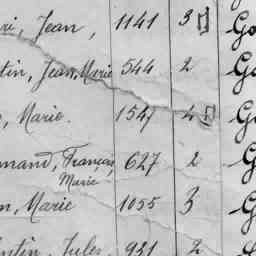 ri, Jean, 1141 3 Go
tin, Jean Marie 544 2 Go
, Marie. 1547 4 G
mand, François, 627 2 G
Marie
n, Marie 1055 3 G
ntin, Jules, 931 2